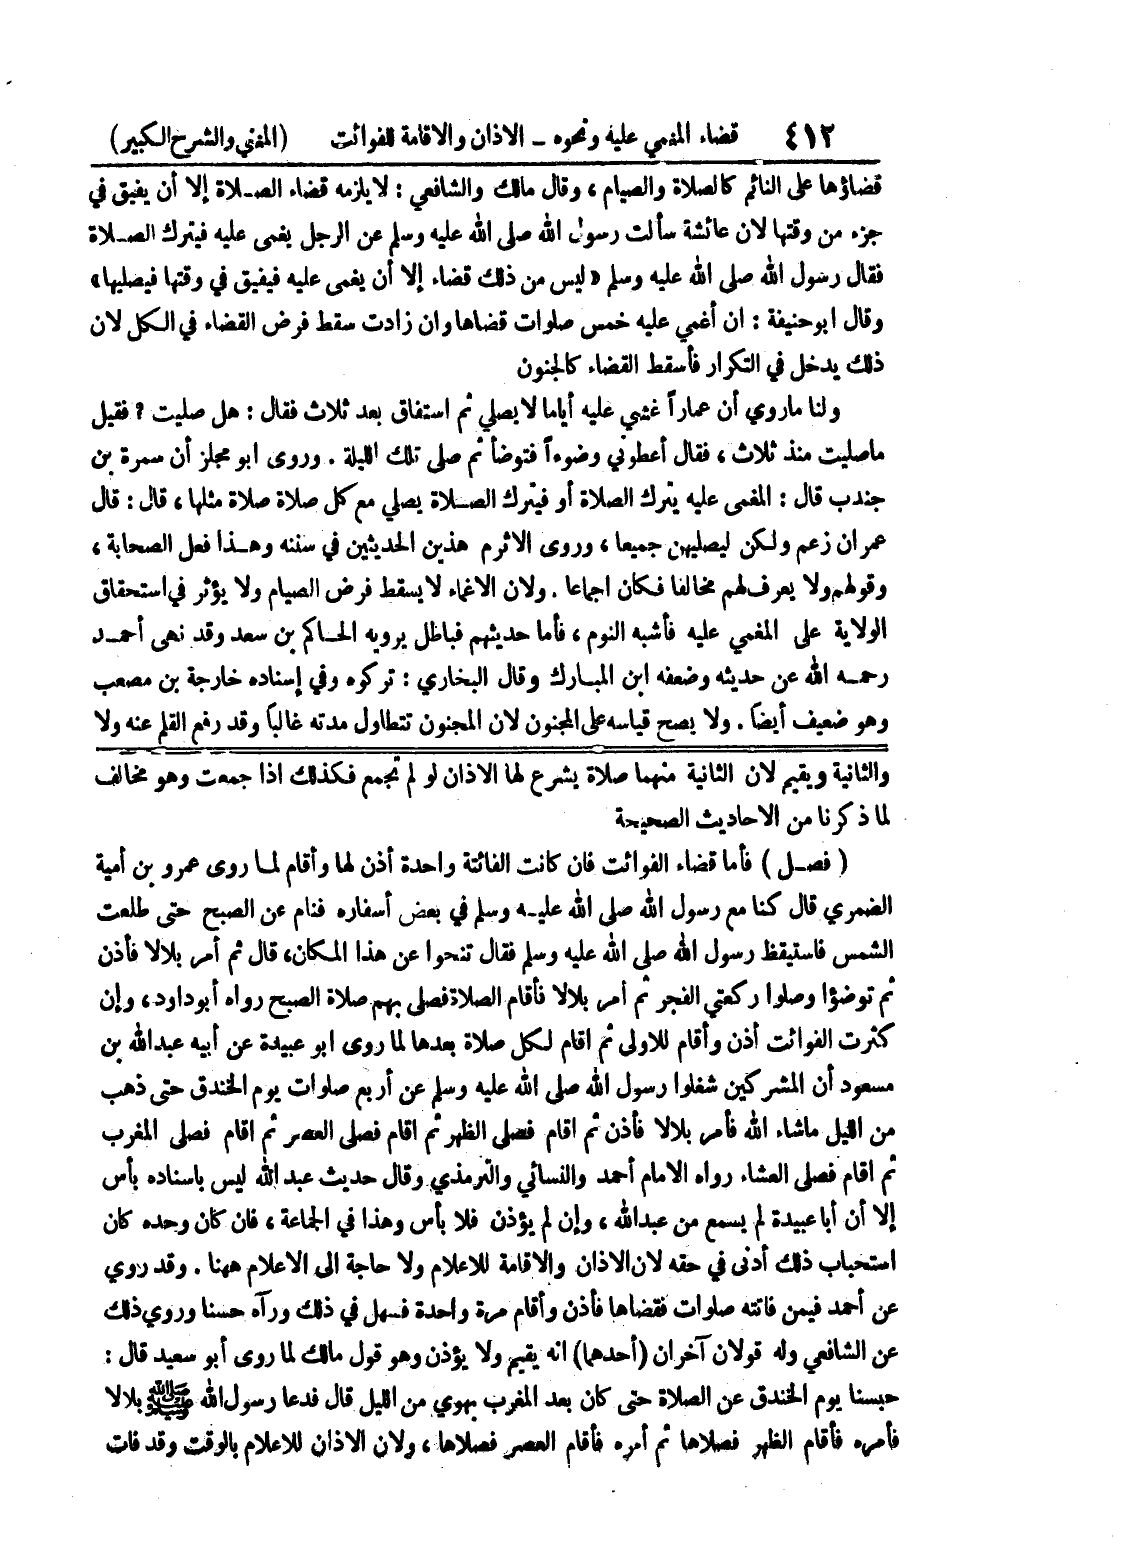 ٤١٢ قضاء المغمي عليه ونحوه ـ الاذان والاقامة للفوائت (المغني والشرح الكبير)
قضاؤها على النائم كالصلاة والصيام ، وقال مالك والشافعي : لا يلزمه قضاء الصـلاة إلا أن يفيق في
جزء من وقتها لان عائشة سألت رسول الله صلى الله عليه وسلم عن الرجل يغمى عليه فيترك الصـلاة
فقال رسول الله صلى الله عليه وسلم «ليس من ذلك قضاء إلا أن يغمى عليه فيفيق في وقتها فيصليها»
وقال ابوحنيفة : ان أغمي عليه خمس صلوات قضاها وان زادت سقط فرض القضاء في الكل لان
ذلك يدخل في التكرار فأسقط القضاء كالجنون
ولنا ماروي أن عماراً غشي عليه أياما لايصلي ثم استفاق بعد ثلاث فقال : هل صليت ؟ فقيل
ماصليت منذ ثلاث ، فقال أعطوني وضوءاً فتوضأ ثم صلى تلك الليلة . وروى ابو مجلز أن سمرة بن
جندب قال : المغمى عليه يترك الصلاة أو فيترك الصـلاة يصلي مع كل صلاة صلاة مثلها ، قال : قال
عمران زعم ولكن ليصليهن جميعا ، وروى الاثرم هذين الحديثين في سننه وهـذا فعل الصحابة ،
وقولهم ولا يعرف لهم مخالفا فكان اجماعا . ولان الاغماء لا يسقط فرض الصيام ولا يؤثر في استحقاق
الولاية على المغمي عليه فأشبه النوم ، فأما حديثهم فباطل يرويه الحـاكم بن سعد وقد نهى أحمـد
رحمـه الله عن حديثه وضعفه ابن المبـارك وقال البخاري : تركوه وفي إسناده خارجة بن مصعب
وهو ضعيف أيضاً . ولا يصح قياسه على المجنون لان المجنون تتطاول مدته غالباً وقد رفع القلم عنه ولا
والثانية ويقيم لان الثانية منهما صلاة يشرع لها الاذان لو لم تجمع فكذلك اذا جمعت وهو مخالف
لما ذكرنا من الاحاديث الصحيحة
( فصـل ) فأما قضاء الفوائت فان كانت الفائتة واحدة أذن لها وأقام لمـا روى عمرو بن أمية
الضمري قال كنا مع رسول الله صلى الله عليـه وسلم في بعض أسفاره فنام عن الصبح حتى طلعت
الشمس فاستيقظ رسول الله صلى الله عليه وسلم فقال تنحوا عن هذا المكان، قال ثم أمر بلالا فأذن
ثم توضؤا وصلوا ركعتي الفجر ثم أمر بلالا فأقام الصلاة فصلى بهم صلاة الصبح رواه أبوداود، وإن
كثرت الفوائت أذن وأقام للاولى ثم اقام لكل صلاة بعدها لما روى ابو عبيدة عن أبيه عبدالله بن
مسعود أن المشركين شغلوا رسول الله صلى الله عليه وسلم عن أربع صلوات يوم الخندق حتى ذهب
من الليل ماشاء الله فأمر بلالا فأذن ثم اقام فصلى الظهر ثم اقام فصلى العصر ثم اقام فصلى المغرب
ثم اقام فصلى العشاء رواه الامام أحمد والنسائي والترمذي وقال حديث عبدالله ليس باسناده بأس
إلا أن أباعبيدة لم يسمع من عبدالله ، وإن لم يؤذن فلا بأس وهذا في الجماعة ، فان كان وحده كان
استحباب ذلك أدنى في حقه لان الاذان والاقامة للاعلام ولا حاجة الى الاعلام ههنا . وقد روي
عن أحمد فيمن فاتته صلوات فقضاها فأذن وأقام مرة واحدة فسهل في ذلك ورآه حسنا وروي ذلك
عن الشافعي وله قولان آخران (أحدها) انه يقيم ولا يؤذن وهو قول مالك لما روى أبو سعيد قال :
حبسنا يوم الخندق عن الصلاة حتى كان بعد المغرب بهوي من الليل قال فدعا رسول الله ﷺ بلالا
فأمره فأقام الظهر فصلاها ثم أمره فأقام العصر فصلاها ، ولان الاذان للاعلام بالوقت وقد فات